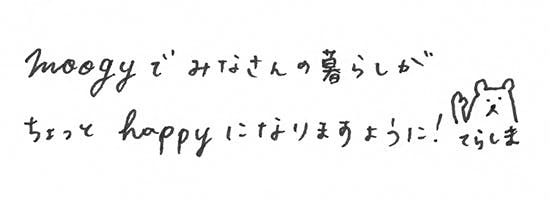 moogyでみなさんの暮らしが
ちょっとhappyになりますように!
てらしま